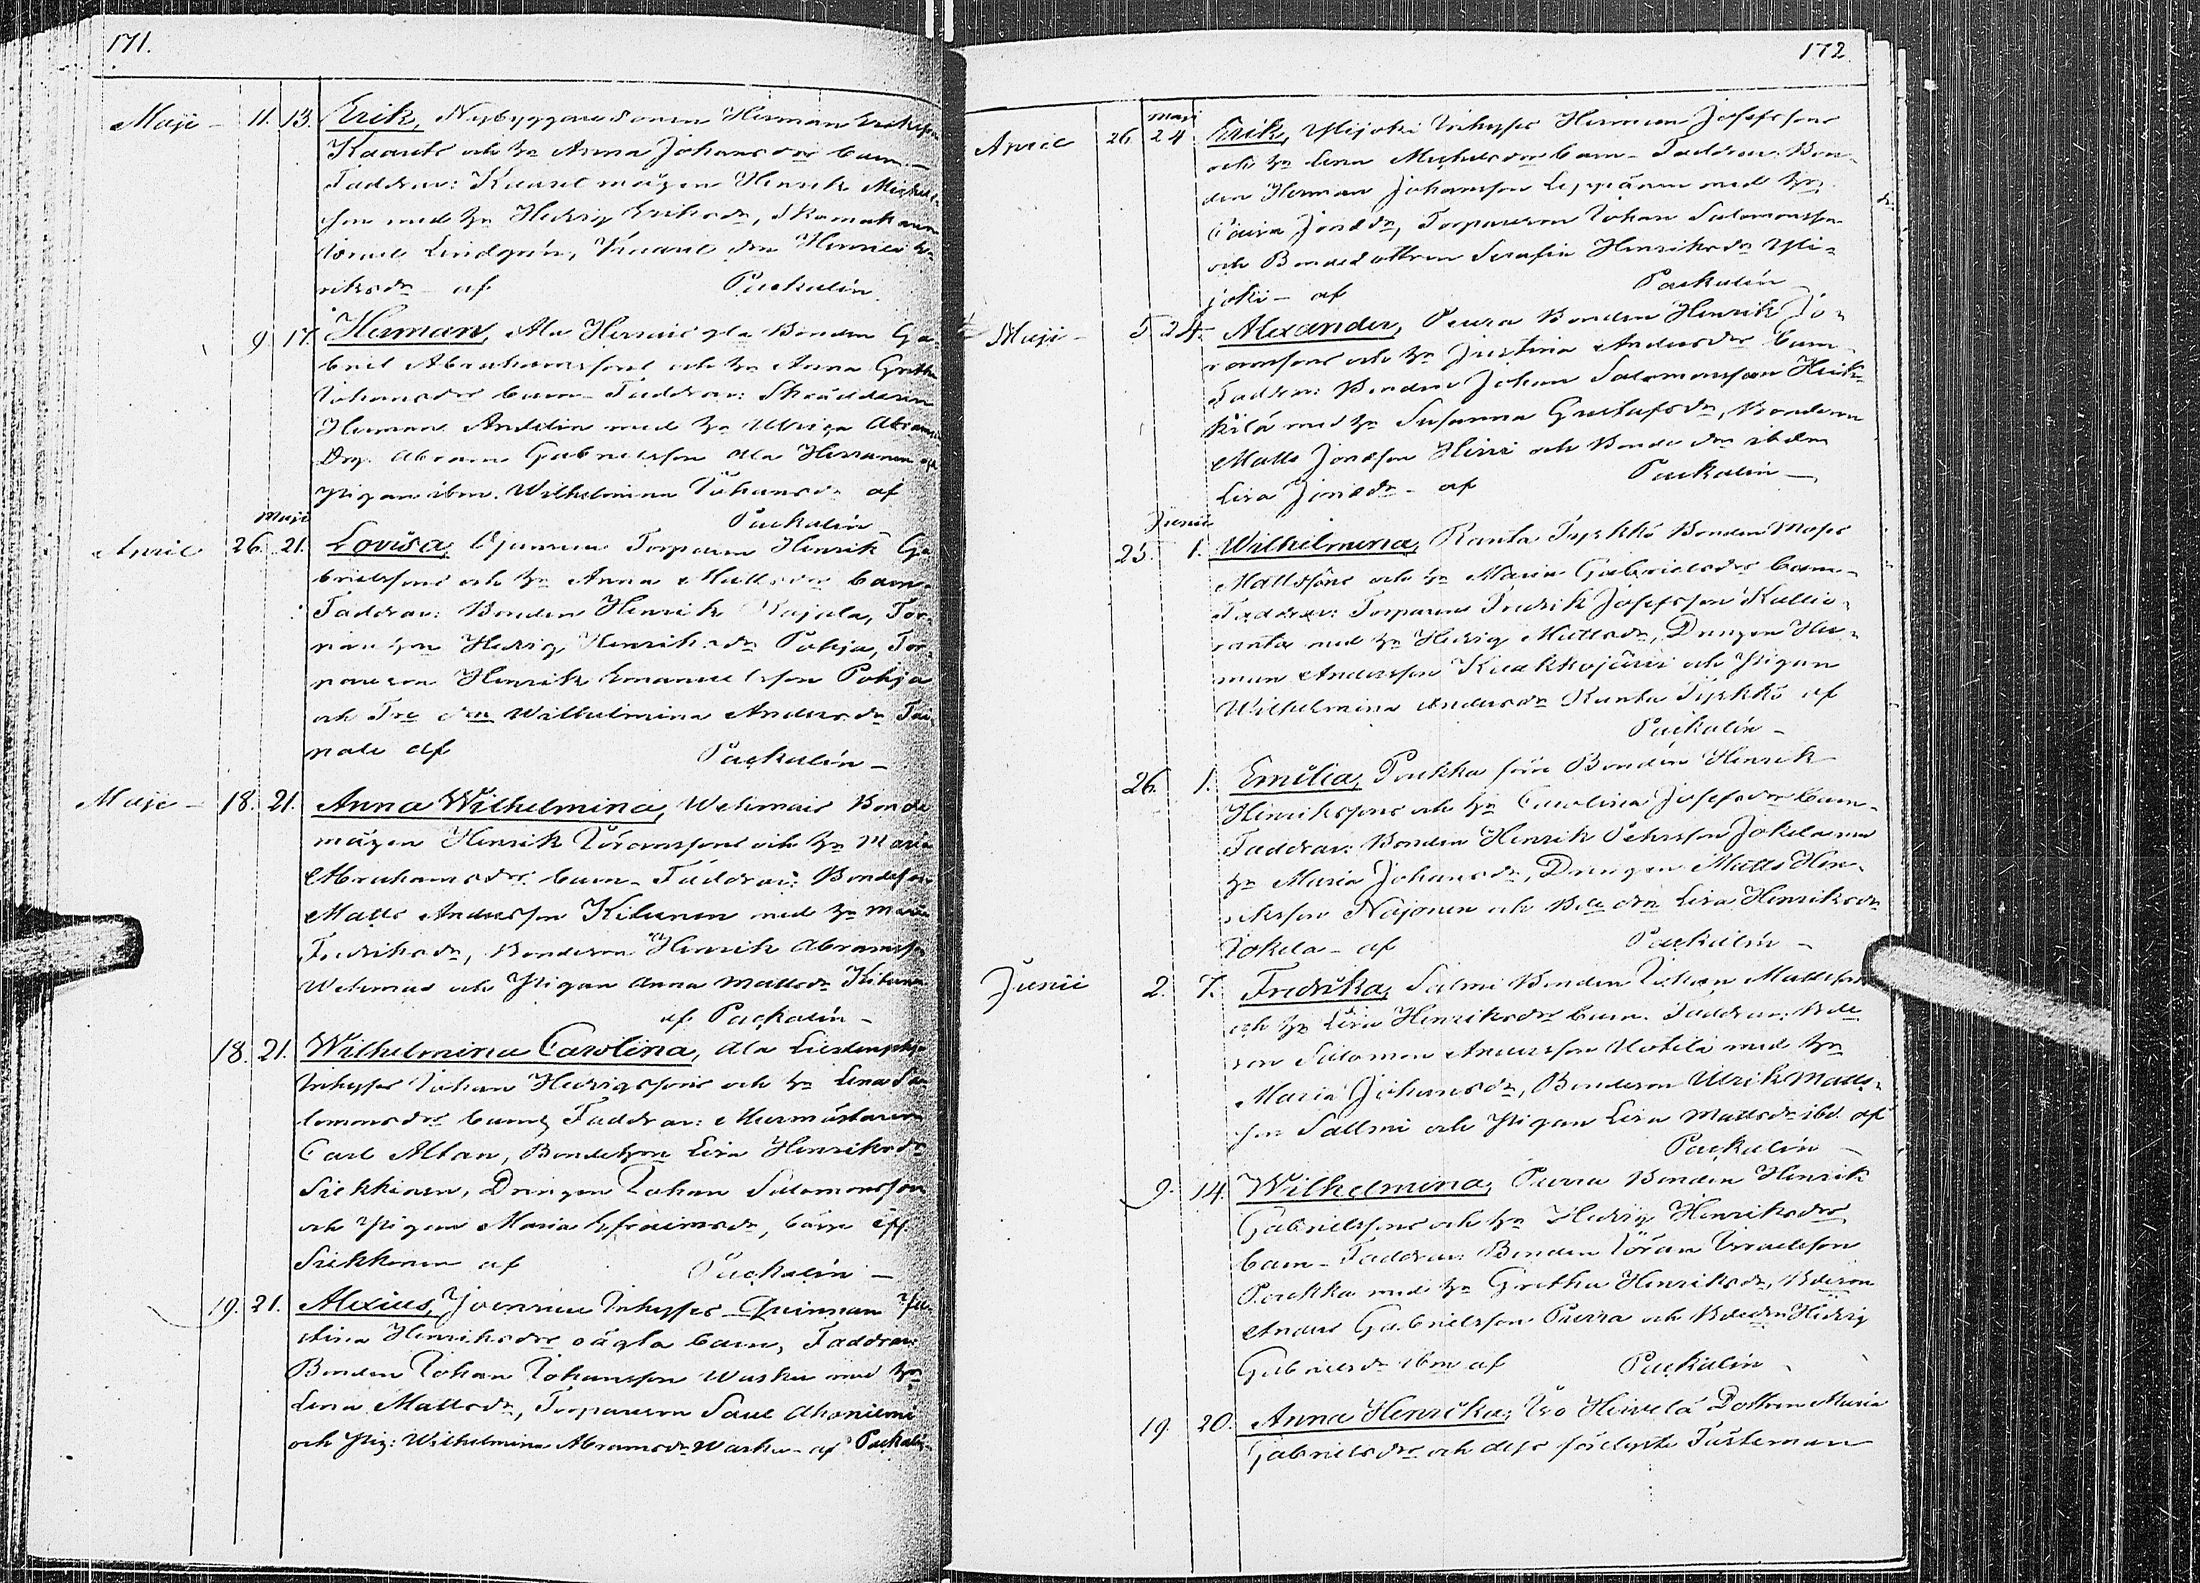 171.
Maji - 11. 13. Erik, Nybyggaresonen Herman Eriks
Kaarts och hu Anna Johansdrs barn. -
Faddrar: Knaust mågen Henrik Michels
son med hu Hedvig Eriksdr, Skomakaren
Lindgrén, Henrica He
riksdr - af Packalén.
9 17. Herman, Ala Bonden Ga
briel Abrahamssons och hu Anna Gretha
Johansdrs barn - Faddrar: Skräddaren
Herman Andelin med hu Ulrica Abrams
Drg. Abram Gabrielsson Ala
Pigan ibm. Wilhelmina Johansdr af
Packalén -
Maji
April 26. 21. Lovisa, Torparen Henrik Ga
brielssons och hu Anna Mattsdrs barn.
Faddrar: Bonden Henrik Rajala, Tor
par hun Hedvig Henriksdr Pohja, Tor
pareson Henrik Emanuelsson Pohja
och Tre den Wilhelmina Andersdr Tai
pale af Packalén -
Maji - 18. 21. Anna Wilhelmina, Wehmais Bonde
mågen Henrik Göranssons och hu Maria
Abrahamsdrs barn - Faddrar: Bondeson
Matts Andersson Kitunen med hu Maria
Fredriksdr, Bondeson Henrik Abramss
Wehmas och Pigan Anna Mattsdr Kitunen
af Packalén -
18. 21. Wilhelmina Carolina, Ala
Inhyses Johan Hedvigssons och hu Lena Sa
lomonsdrs barn, Faddrar: Murmästaren
Carl Altan, Bondehun Lisa Henriksdr
Siekkinen, Drengen Johan Salomonsson
och Pigan Maria Efraimsdr, både
Siekkinen af Packalén -
19. 21. Alexius, Inhyses Qvinnan Ju
stina Henriksdrs oägta barn, Faddrar
Bonden Johan Johansson Waska med hu
Lena Mattsdr, Torpareson Saul Ahoniemi
och Pig: Wilhelmina Abramsdr Waska - af Packalén
172.
Maji
April 26. 24 Erik, Ylijoki Inhyses Herman Josefssons
och hu Lena Michelsdrs barn - Faddrar: Bon
den Herman Johansson Leppänen med hu
Caisa Jonsdr, Torpareson Johan Salomonsson
och Bondedottren Serafia Henriksdr Yli-
joki - af Packalén
Maji - 5 24. Alexander, Peura Bonden Henrik Jo-
ranssons och hu Justina Andersdrs barn
Faddrar: Bonden Johan Salomonsson Heik-
kilä med hu Susanna Gustafsdr, Bondeson
Matts Jonsson Hirsi och Bonde drn ibdm
Lisa Jonsdr - af Packalén -
Junii
25. 1. Wilhelmina, Ranta Tyrkkö Bonden Moses
Mattssons och hu Maria Gabrielsdrs barn -
Faddrar: Torparen Fredrik Josefsson Kallio-
ranta med hu Hedvig Mattsdr, Drengen Her-
man Andersson Kuakkajärvi och Pigan
Wilhelmina Andersdr Ranta Tyrkkö af
Packalén -
26. 1. Emilia, Poukka Bonden Henrik
Henrikssons och hu Carolina Josefsdrs barn -
Faddrar: Bonden Henrik Pehrsson Jokela med
hu Maria Johansdr, Drengen Matts Hen-
riksson Näjonen och Bde drn Lisa Henriksdr
Jokela - af Packalén -
Junii 2. 7. Fredrika, Salmi Bonden Johan Mattssons
och hu Lisa Henriksdrs barn. Faddrar: Bde
son Salomon Andersson Uotila med hu
Maria Johansdr, Bondeson Ulrik Matts-
son Sallmi och Pigan Lisa Mattsdr ibd. af
Packalén -
9. 14. Wilhelmina, Purra Bonden Henrik
Gabrielssons och hu Hedvig Henriksdrs
barn - Faddrar: Bonden Göran Israelsson
Poukka med hu Gretha Henriksdr, Bdeson
Anders Gabrielsson Purra och Bdedrn Hedvig
Gabrielsdr ibm af Packalén -
19. 20. Anna Henrika, Iso Hirvelä Dottren Maria
Gabrielsdrs och dess förlofvade Fästeman